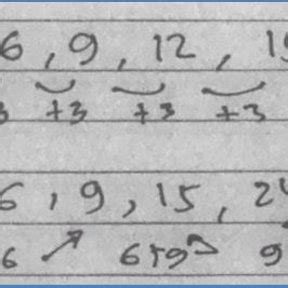 6, 9, 12, 1
+3 +3 +3
6, 9, 15, 2
6 ↗ 6+9 9